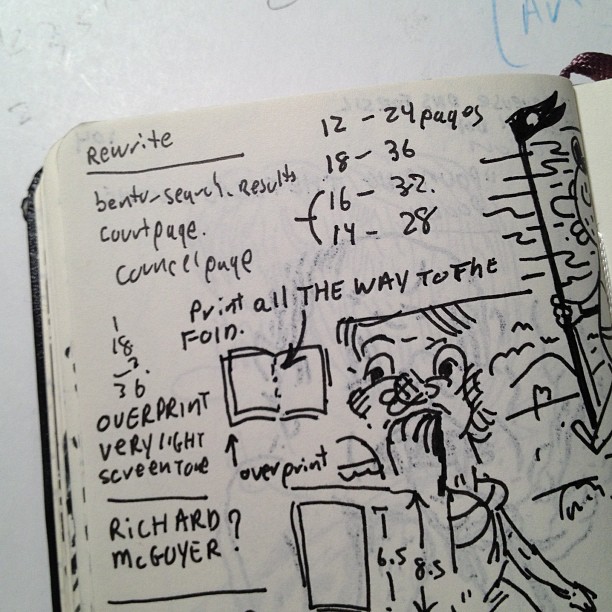 Rewrite
bento-search.Results
courtpage.
councilpage
12 - 24 pages
18 - 36
16 - 32.
14 - 28
Print all THE WAY TO The
FOlD.
1
18
2
36
OVERPRINT
VERY LIGHT
screen tone
overprint
RiCHARD?
McGUYER?
6.5
8.5